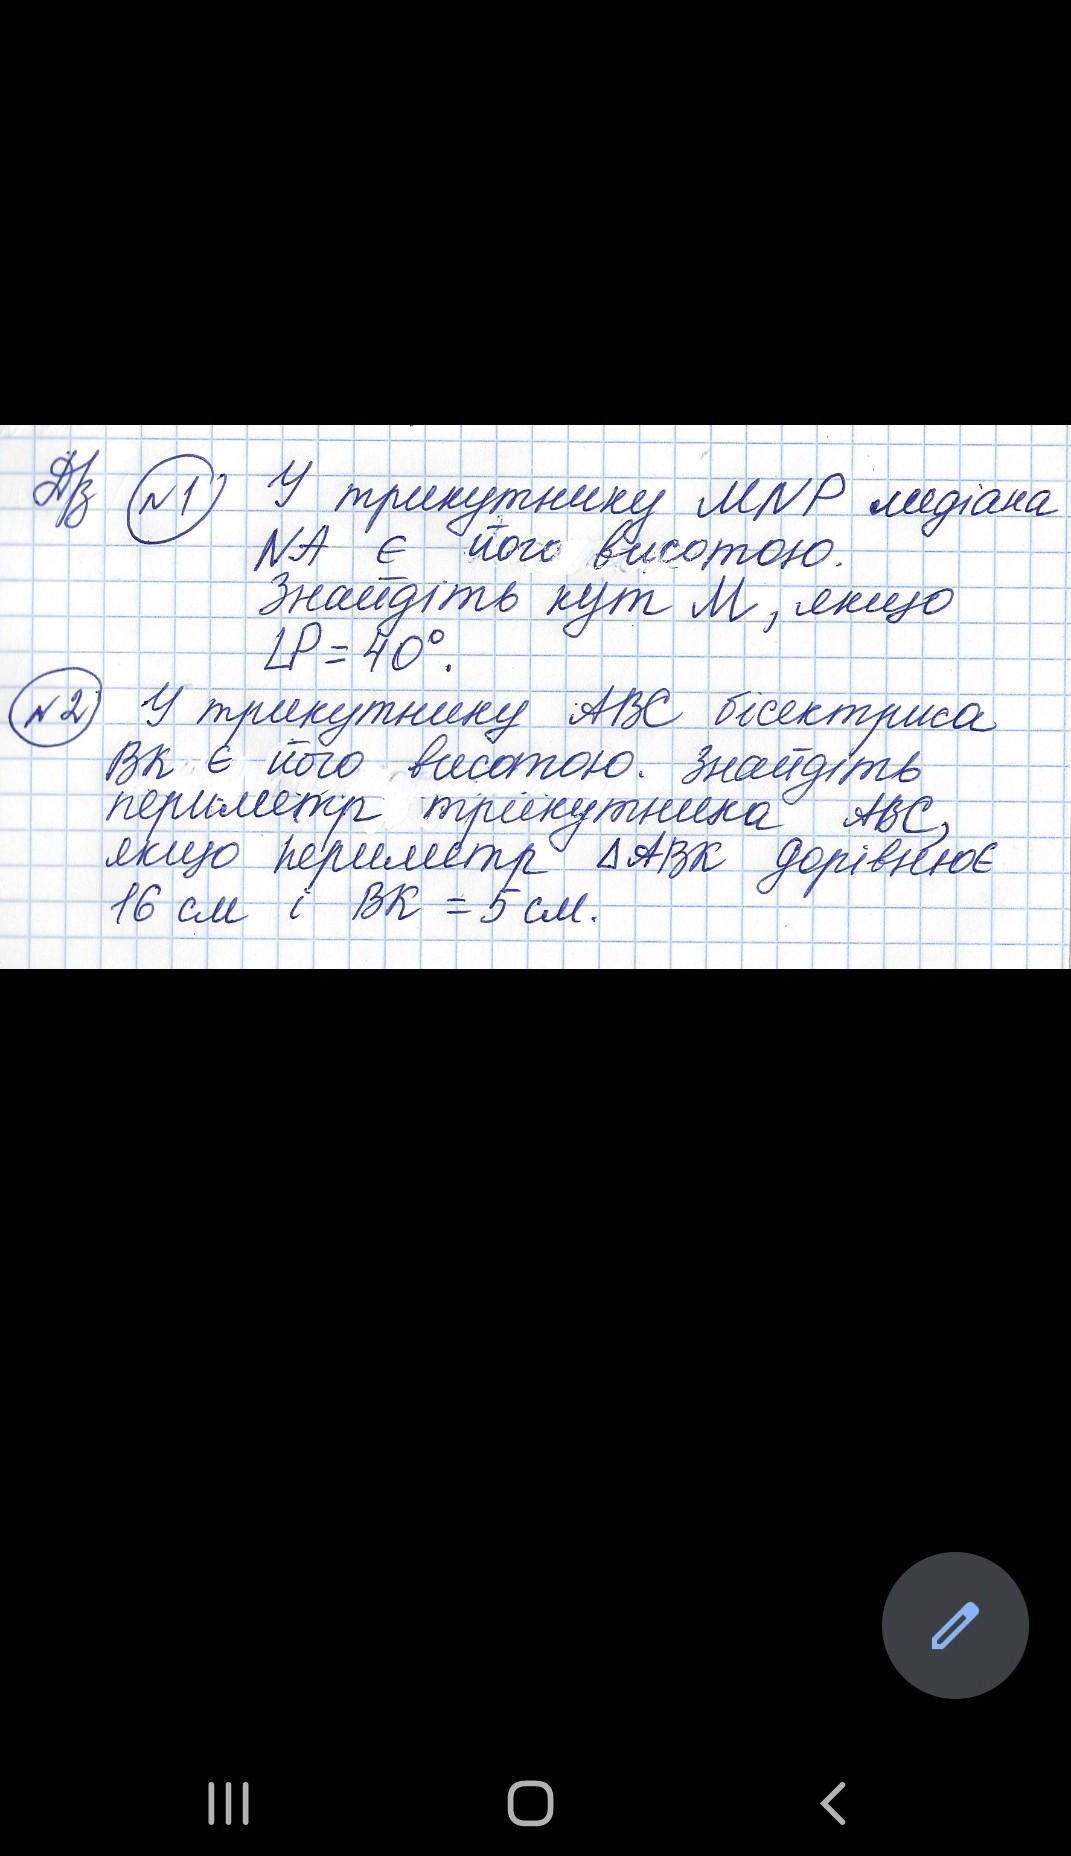 Д/з №1 У трикутнику MNP медіана
NA є його висотою.
Знайдіть кут М, якщо
∠P = 40°.
№2 У трикутнику ABC бісектриса
BK є його висотою. Знайдіть
периметр трикутника ABC,
якщо периметр ΔABK дорівнює
16 см і BK = 5 см.